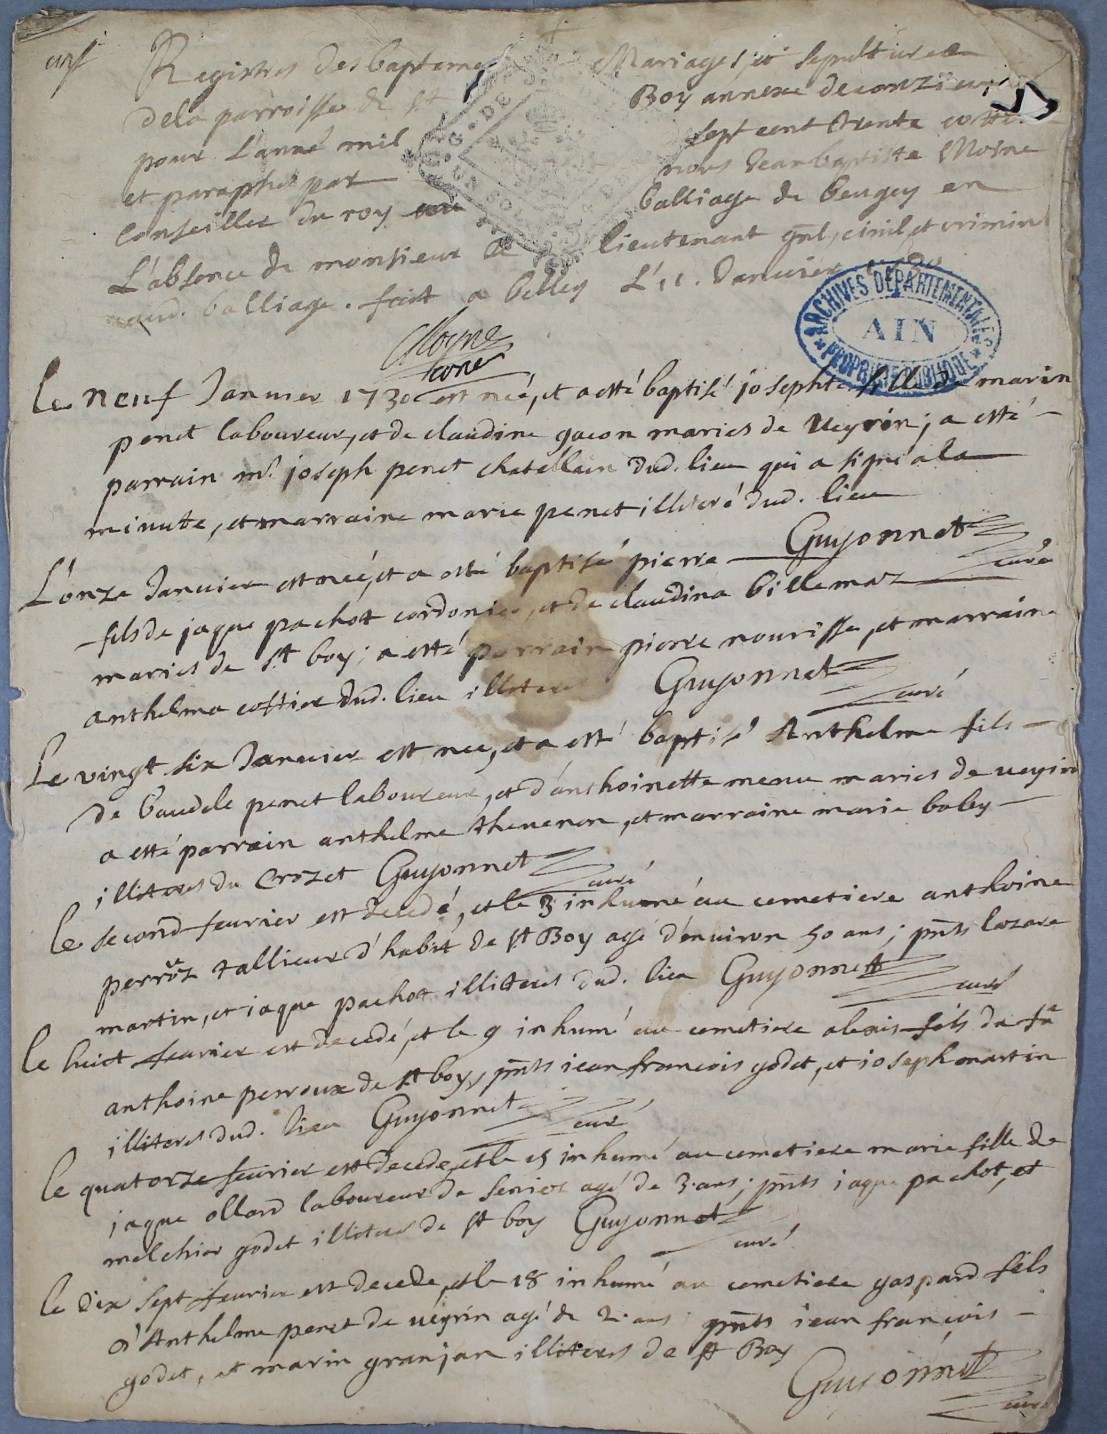 Registres des baptemes Mariages, et sepultures
dela parroisse de st Boy annexe de conzieu
pour L'anné mil sept cent trente cotté
et paraphes par nous Jean baptiste Moyne
Conseiller du roy au balliage de beugey en
L'absence de monsieur le lieutenant gnl, civil, et criminel
aud. balliage. faict a belley L'11. Janvier 1730
Moyne
ARCHIVES DEPARTEMENTALES
AIN
PROPRIETE PUBLIQUE
le neuf Janvier 1730 est neé, et a esté baptisé josephte fille de marin
penet laboureur, et de claudine gacon mariés de veyrin; a esté
parrain mr. joseph penet chatellain dud. lieu qui a signé a la
minute, et marraine marie penet illiteré dud. lieu
Guyonnet
curé
L'onze Janvier est neé, et a esté baptisé pierre
fils de jaque pachott cordonier, et de claudina billemaz
mariés de st boy; a esté parrain pierre nourisse, et marraine
anthelma cottier dud. lieu illiteres Guyonnet
curé
Le vingt six Janvier est nee, et a esté baptisé Anthelme fils
de baudele penet laboureur, et d'anthoinette menu mariés de veyrin
a esté parrain anthelme thevenon, et marraine marie baley
illiteres du crozet Guyonnet
curé
le second fevrier est decedé, et le 3 inhumé au cemetiere anthoine
perroz tallieur d'habit de st Boy agé d'environ 50 ans; pnts lazare
martin, et jaque pachot illiteres dud. lieu Guyonnet
curé
le huict fevrier est decedé, et le 9 inhumé au cemetiere alexis fils de fû
anthoine perroux de st boy, pnts jean francois godet, et joseph martin
illiteres dud. lieu Guyonnet
curé
le quatorze fevrier est decede, et le 15 inhumé au cemetiere marie fille de
jaque ollard laboureur de agé de 3 ans; pnts jaque pachot, et
melchior godet illiteres de st boy Guyonnet
curé
le dix sept fevrier est decede, et le 18 inhumé au cemetiere gaspard fils
d'Anthelme penet de veyrin agé de 2 ans pnts jean francois
godet, et marin granjan illiteres de st Boy
Guyonnet
curé